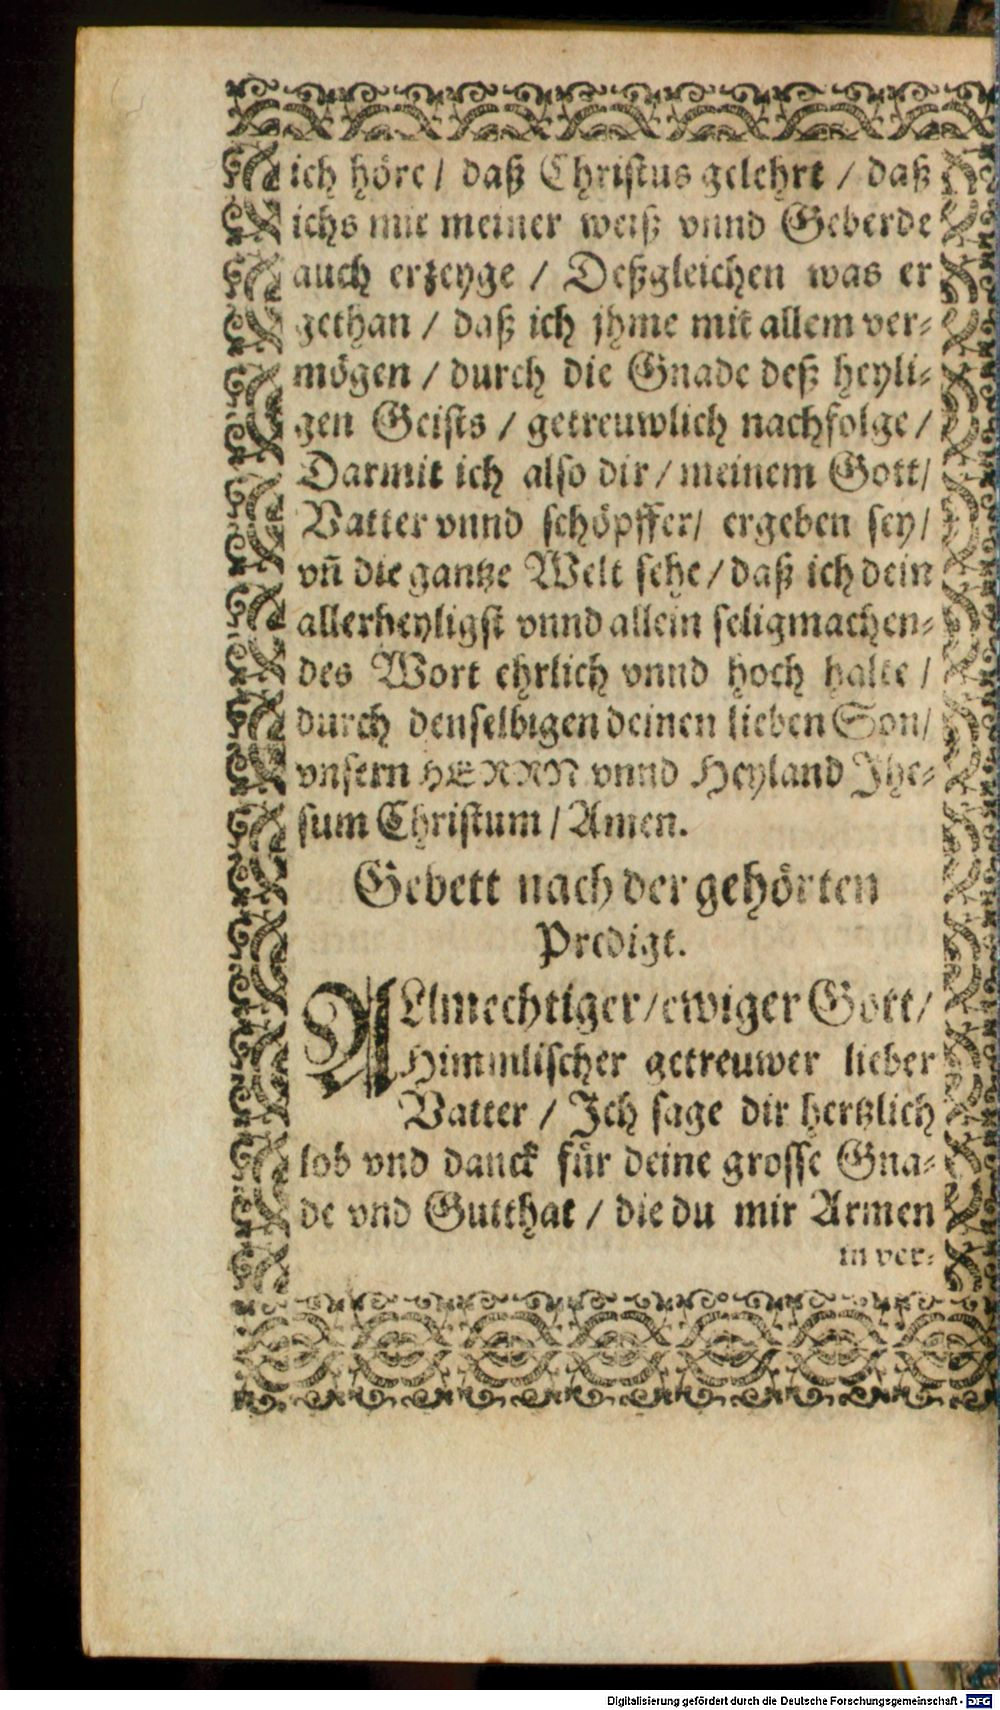 ich höre / daß Christus gelehrt / daß
ichs mit meiner weiß vnnd Geberde
auch erzeyge / Deßgleichen was er
gethan / daß ich jhme mit allem ver⸗
mögen / durch die Gnade deß heyli⸗
gen Geists / getreuwlich nachfolge /
Darmit ich also dir / meinem Gott /
Vatter vnnd schöpffer / ergeben sey /
vñ die gantze Welt sehe / daß ich dein
allerheyligst vnnd allein seligmachen⸗
des Wort ehrlich vnnd hoch halte /
durch denselbigen deinen lieben Son /
vnsern HERRN vnnd Heyland Jhe⸗
sum Christum / Amen.
Gebett nach der gehörten
Predigt.
ALlmechtiger / ewiger Gott /
Himmlischer getreuwer lieber
Vatter / Ich sage dir hertzlich
lob vnd danck für deine grosse Gna⸗
de vnd Gutthat / die du mir Armen
in ver⸗
Digitalisierung gefördert durch die Deutsche Forschungsgemeinschaft - DFG